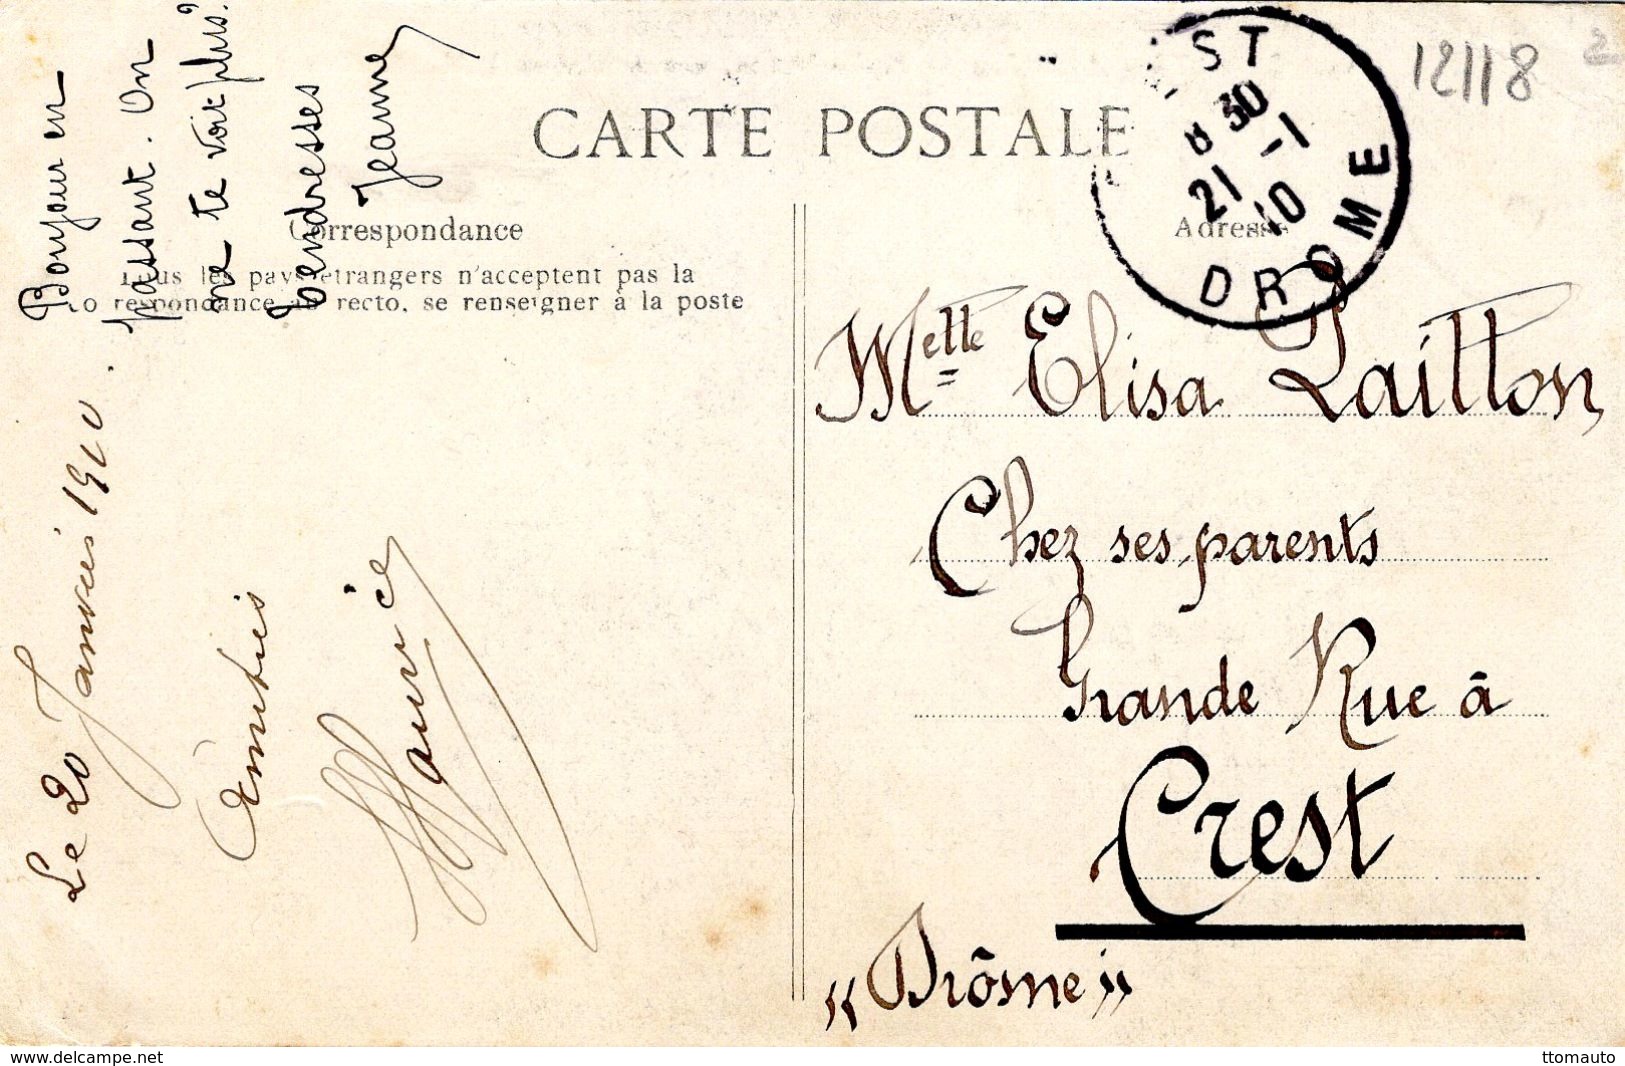 CARTE POSTALE
Correspondance
Tous les pays étrangers n'acceptent pas la
correspondance au recto, se renseigner à la poste
Adresse
ST
8 30
21 -1
10
DROME
12118
2
Bonjour en
passant. On
ne te voit plus?
Tendresses
Jeanne
Le 20 Janvier 1910.
Amitiés
Maurice
Melle Elisa Paillon
Chez ses parents
Grande Rue à
Crest
"Drôme"
www.delcampe.net
ttomauto